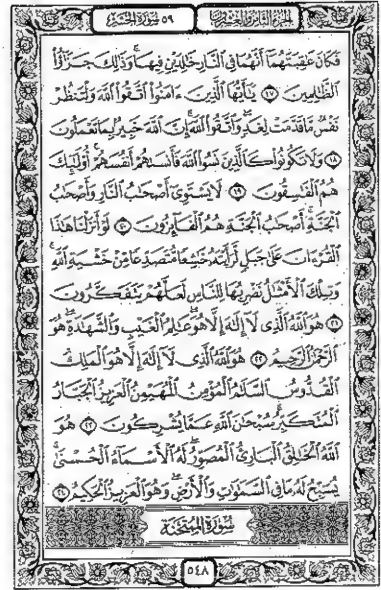 الجزء الثامن والعشرون
٥٩ سُورَةُ الحَشْرِ
فَكَانَ عَٰقِبَتَهُمَآ أَنَّهُمَا فِي ٱلنَّارِ خَٰلِدَيْنِ فِيهَاۚ وَذَٰلِكَ جَزَٰٓؤُاْ
ٱلظَّٰلِمِينَ ١٧ يَٰٓأَيُّهَا ٱلَّذِينَ ءَامَنُواْ ٱتَّقُواْ ٱللَّهَ وَلۡتَنظُرۡ
نَفۡسٞ مَّا قَدَّمَتۡ لِغَدٖۖ وَٱتَّقُواْ ٱللَّهَۚ إِنَّ ٱللَّهَ خَبِيرُۢ بِمَا تَعۡمَلُونَ
١٨ وَلَا تَكُونُواْ كَٱلَّذِينَ نَسُواْ ٱللَّهَ فَأَنسَىٰهُمۡ أَنفُسَهُمۡۚ أُوْلَٰٓئِكَ
هُمُ ٱلۡفَٰسِقُونَ ١٩ لَا يَسۡتَوِيٓ أَصۡحَٰبُ ٱلنَّارِ وَأَصۡحَٰبُ
ٱلۡجَنَّةِۚ أَصۡحَٰبُ ٱلۡجَنَّةِ هُمُ ٱلۡفَآئِزُونَ ٢٠ لَوۡ أَنزَلۡنَا هَٰذَا
ٱلۡقُرۡءَانَ عَلَىٰ جَبَلٖ لَّرَأَيۡتَهُۥ خَٰشِعٗا مُّتَصَدِّعٗا مِّنۡ خَشۡيَةِ ٱللَّهِۚ
وَتِلۡكَ ٱلۡأَمۡثَٰلُ نَضۡرِبُهَا لِلنَّاسِ لَعَلَّهُمۡ يَتَفَكَّرُونَ
٢١ هُوَ ٱللَّهُ ٱلَّذِي لَآ إِلَٰهَ إِلَّا هُوَۖ عَٰلِمُ ٱلۡغَيۡبِ وَٱلشَّهَٰدَةِۖ هُوَ
ٱلرَّحۡمَٰنُ ٱلرَّحِيمُ ٢٢ هُوَ ٱللَّهُ ٱلَّذِي لَآ إِلَٰهَ إِلَّا هُوَ ٱلۡمَلِكُ
ٱلۡقُدُّوسُ ٱلسَّلَٰمُ ٱلۡمُؤۡمِنُ ٱلۡمُهَيۡمِنُ ٱلۡعَزِيزُ ٱلۡجَبَّارُ
ٱلۡمُتَكَبِّرُۚ سُبۡحَٰنَ ٱللَّهِ عَمَّا يُشۡرِكُونَ ٢٣ هُوَ
ٱللَّهُ ٱلۡخَٰلِقُ ٱلۡبَارِئُ ٱلۡمُصَوِّرُۖ لَهُ ٱلۡأَسۡمَآءُ ٱلۡحُسۡنَىٰۚ
يُسَبِّحُ لَهُۥ مَا فِي ٱلسَّمَٰوَٰتِ وَٱلۡأَرۡضِۖ وَهُوَ ٱلۡعَزِيزُ ٱلۡحَكِيمُ ٢٤
سُورَةُ المُمتَحنَة
٥٤٨